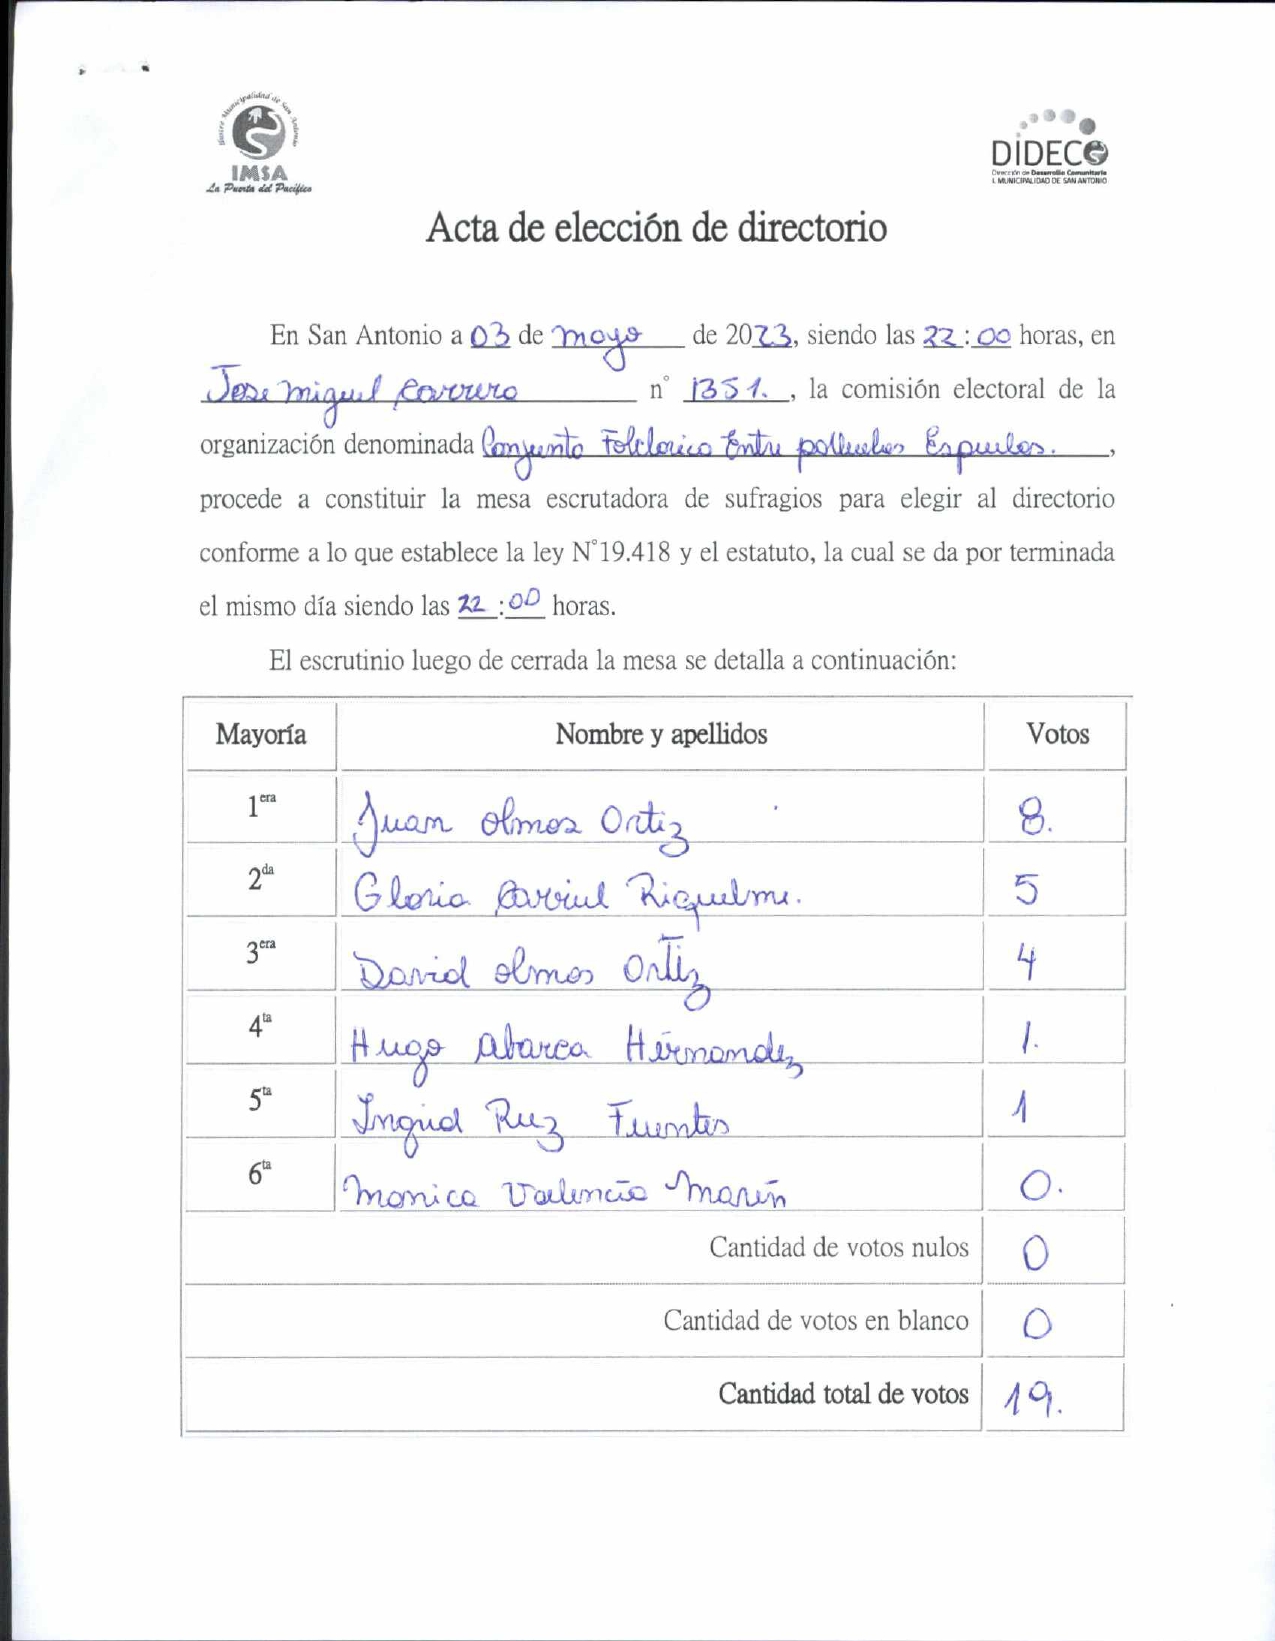 Ilustre Municipalidad de San Antonio
IMSA
La Puerta del Pacífico
DIDECO
Dirección de Desarrollo Comunitario
I. MUNICIPALIDAD DE SAN ANTONIO
Acta de elección de directorio
En San Antonio a 03 de mayo de 2023, siendo las 22:00 horas, en
Jose Miguel Carrera n° 1351. , la comisión electoral de la
organización denominada Conjunto Folclorico Entre polleras Espuelas. ,
procede a constituir la mesa escrutadora de sufragios para elegir al directorio
conforme a lo que establece la ley N°19.418 y el estatuto, la cual se da por terminada
el mismo día siendo las 22:00 horas.
El escrutinio luego de cerrada la mesa se detalla a continuación:
Mayoría Nombre y apellidos Votos
1era Juan Olmos Ortiz 8.
2da Gloria Riquelme. 5
3era David Olmos Ortiz 4
4ta Hugo Abarca Hernandez 1.
5ta Ingrid Ruz Fuentes 1
6ta Monica Valencia Marín 0.
Cantidad de votos nulos 0
Cantidad de votos en blanco 0
Cantidad total de votos 19.